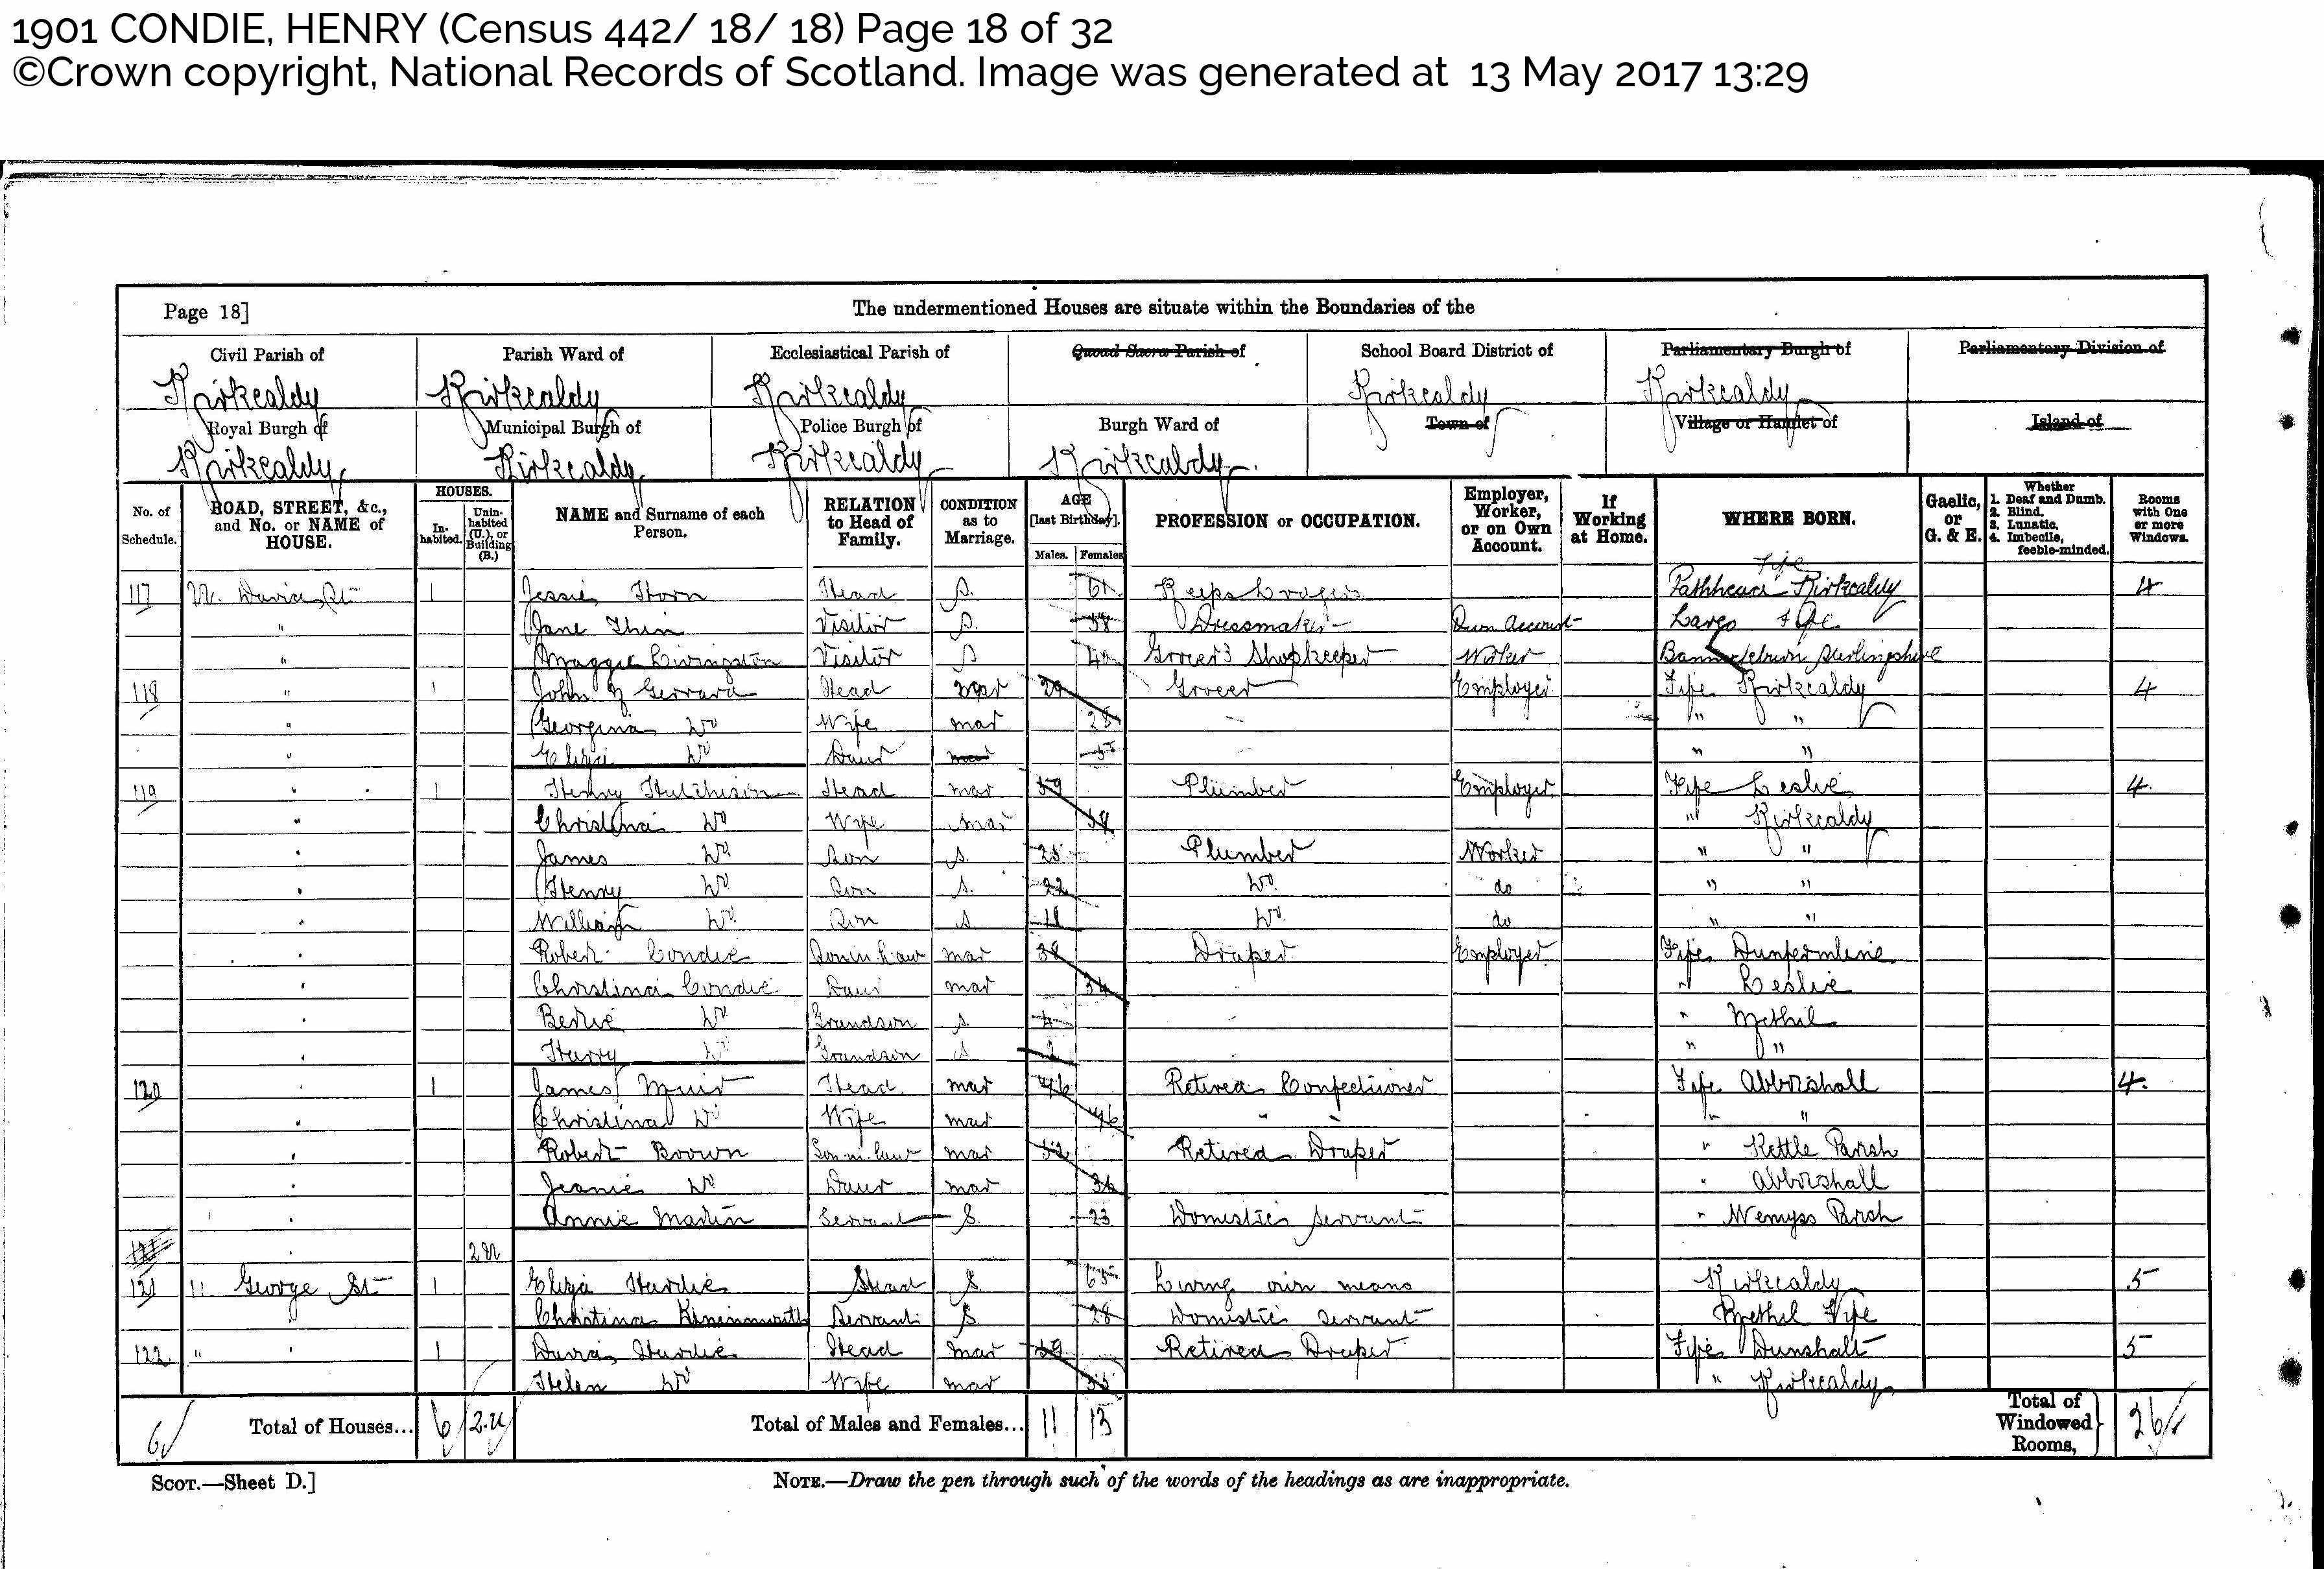 1901 CONDIE, HENRY (Census 442/ 18/ 18) Page 18 of 32
©Crown copyright, National Records of Scotland. Image was generated at 13 May 2017 13:29
Page 18] The undermentioned Houses are situate within the Boundaries of the
Civil Parish of Parish Ward of Ecclesiastical Parish of Quoad Sacra Parish of School Board District of Parliamentary Burgh of Parliamentary Division of
Kirkcaldy Kirkcaldy Kirkcaldy Kirkcaldy Kirkcaldy
Royal Burgh of Municipal Burgh of Police Burgh of Burgh Ward of Town of Village or Hamlet of Island of
Kirkcaldy Kirkcaldy Kirkcaldy Kirkcaldy
No. of Schedule. ROAD, STREET, &c., and No. or NAME of HOUSE. HOUSES. In-habited. Unin-habited (U.), or Building (B.) NAME and Surname of each Person. RELATION to Head of Family. CONDITION as to Marriage. AGE [last Birthday]. Males. Females PROFESSION or OCCUPATION. Employer, Worker, or on Own Account. If Working at Home. WHERE BORN. Gaelic, or G. & E. Whether 1. Deaf and Dumb. 2. Blind. 3. Lunatic. 4. Imbecile, feeble-minded. Rooms with One or more Windows.
Fife
117 David St 1 Jessie Horn Head S. 61 Keeps Lodgers Pathhead Kirkcaldy 4
" Jane Thin Visitor S. 38 Dressmaker Own Account Largo Fife
" Maggie Livingston Visitor S 40 Shopkeeper Worker Bannockburn Stirlingshire
118 " 1 John Gerrard Head mar 29 Grocer Employer Fife Kirkcaldy 4
" Georgina Do Wife mar 28 " "
" Eliza Do Daur mar 5 " "
119 " 1 Henry Hutchison Head mar 59 Plumber Employer Fife Leslie 4.
" Christina Do Wife mar " Kirkcaldy
" James Do Son S. 25 Plumber Worker " "
" Henry Do Son S. 22 Do. do " "
" William Do. Son S 18 Do. do " "
" Robert Condie Son in Law mar 38 Draper Employer Fife Dunfermline
" Christina Condie Daur mar 34 " Leslie
" Do Grandson S 4 " Methil
" Harry Do Grandson S " "
120 " 1 James Muir Head mar 76 Retired Confectioner Fife Abbotshall 4.
" Christina Do Wife mar 76 " "
" Robert Brown Son in law mar 52 Retired Draper " Kettle Parish
" Jeanie Do Daur mar 36 " Abbotshall
" Annie Martin Servant S. 23 Domestic Servant " Wemyss Parish
121 " 2U
121 11 George St 1 Eliza Hardie Head S. 65 Living own means Kirkcaldy 5
Christina Servant S. 28 Domestic Servant Methil Fife
122 " " 1 David Hardie Head mar 59 Retired Draper Fife Dunshalt 5
Helen Do Wife mar 55 " Kirkcaldy
6 Total of Houses... 6 2.U Total of Males and Females... 11 13 Total of Windowed Rooms, 26
SCOT.—Sheet D.] NOTE.—Draw the pen through such of the words of the headings as are inappropriate.